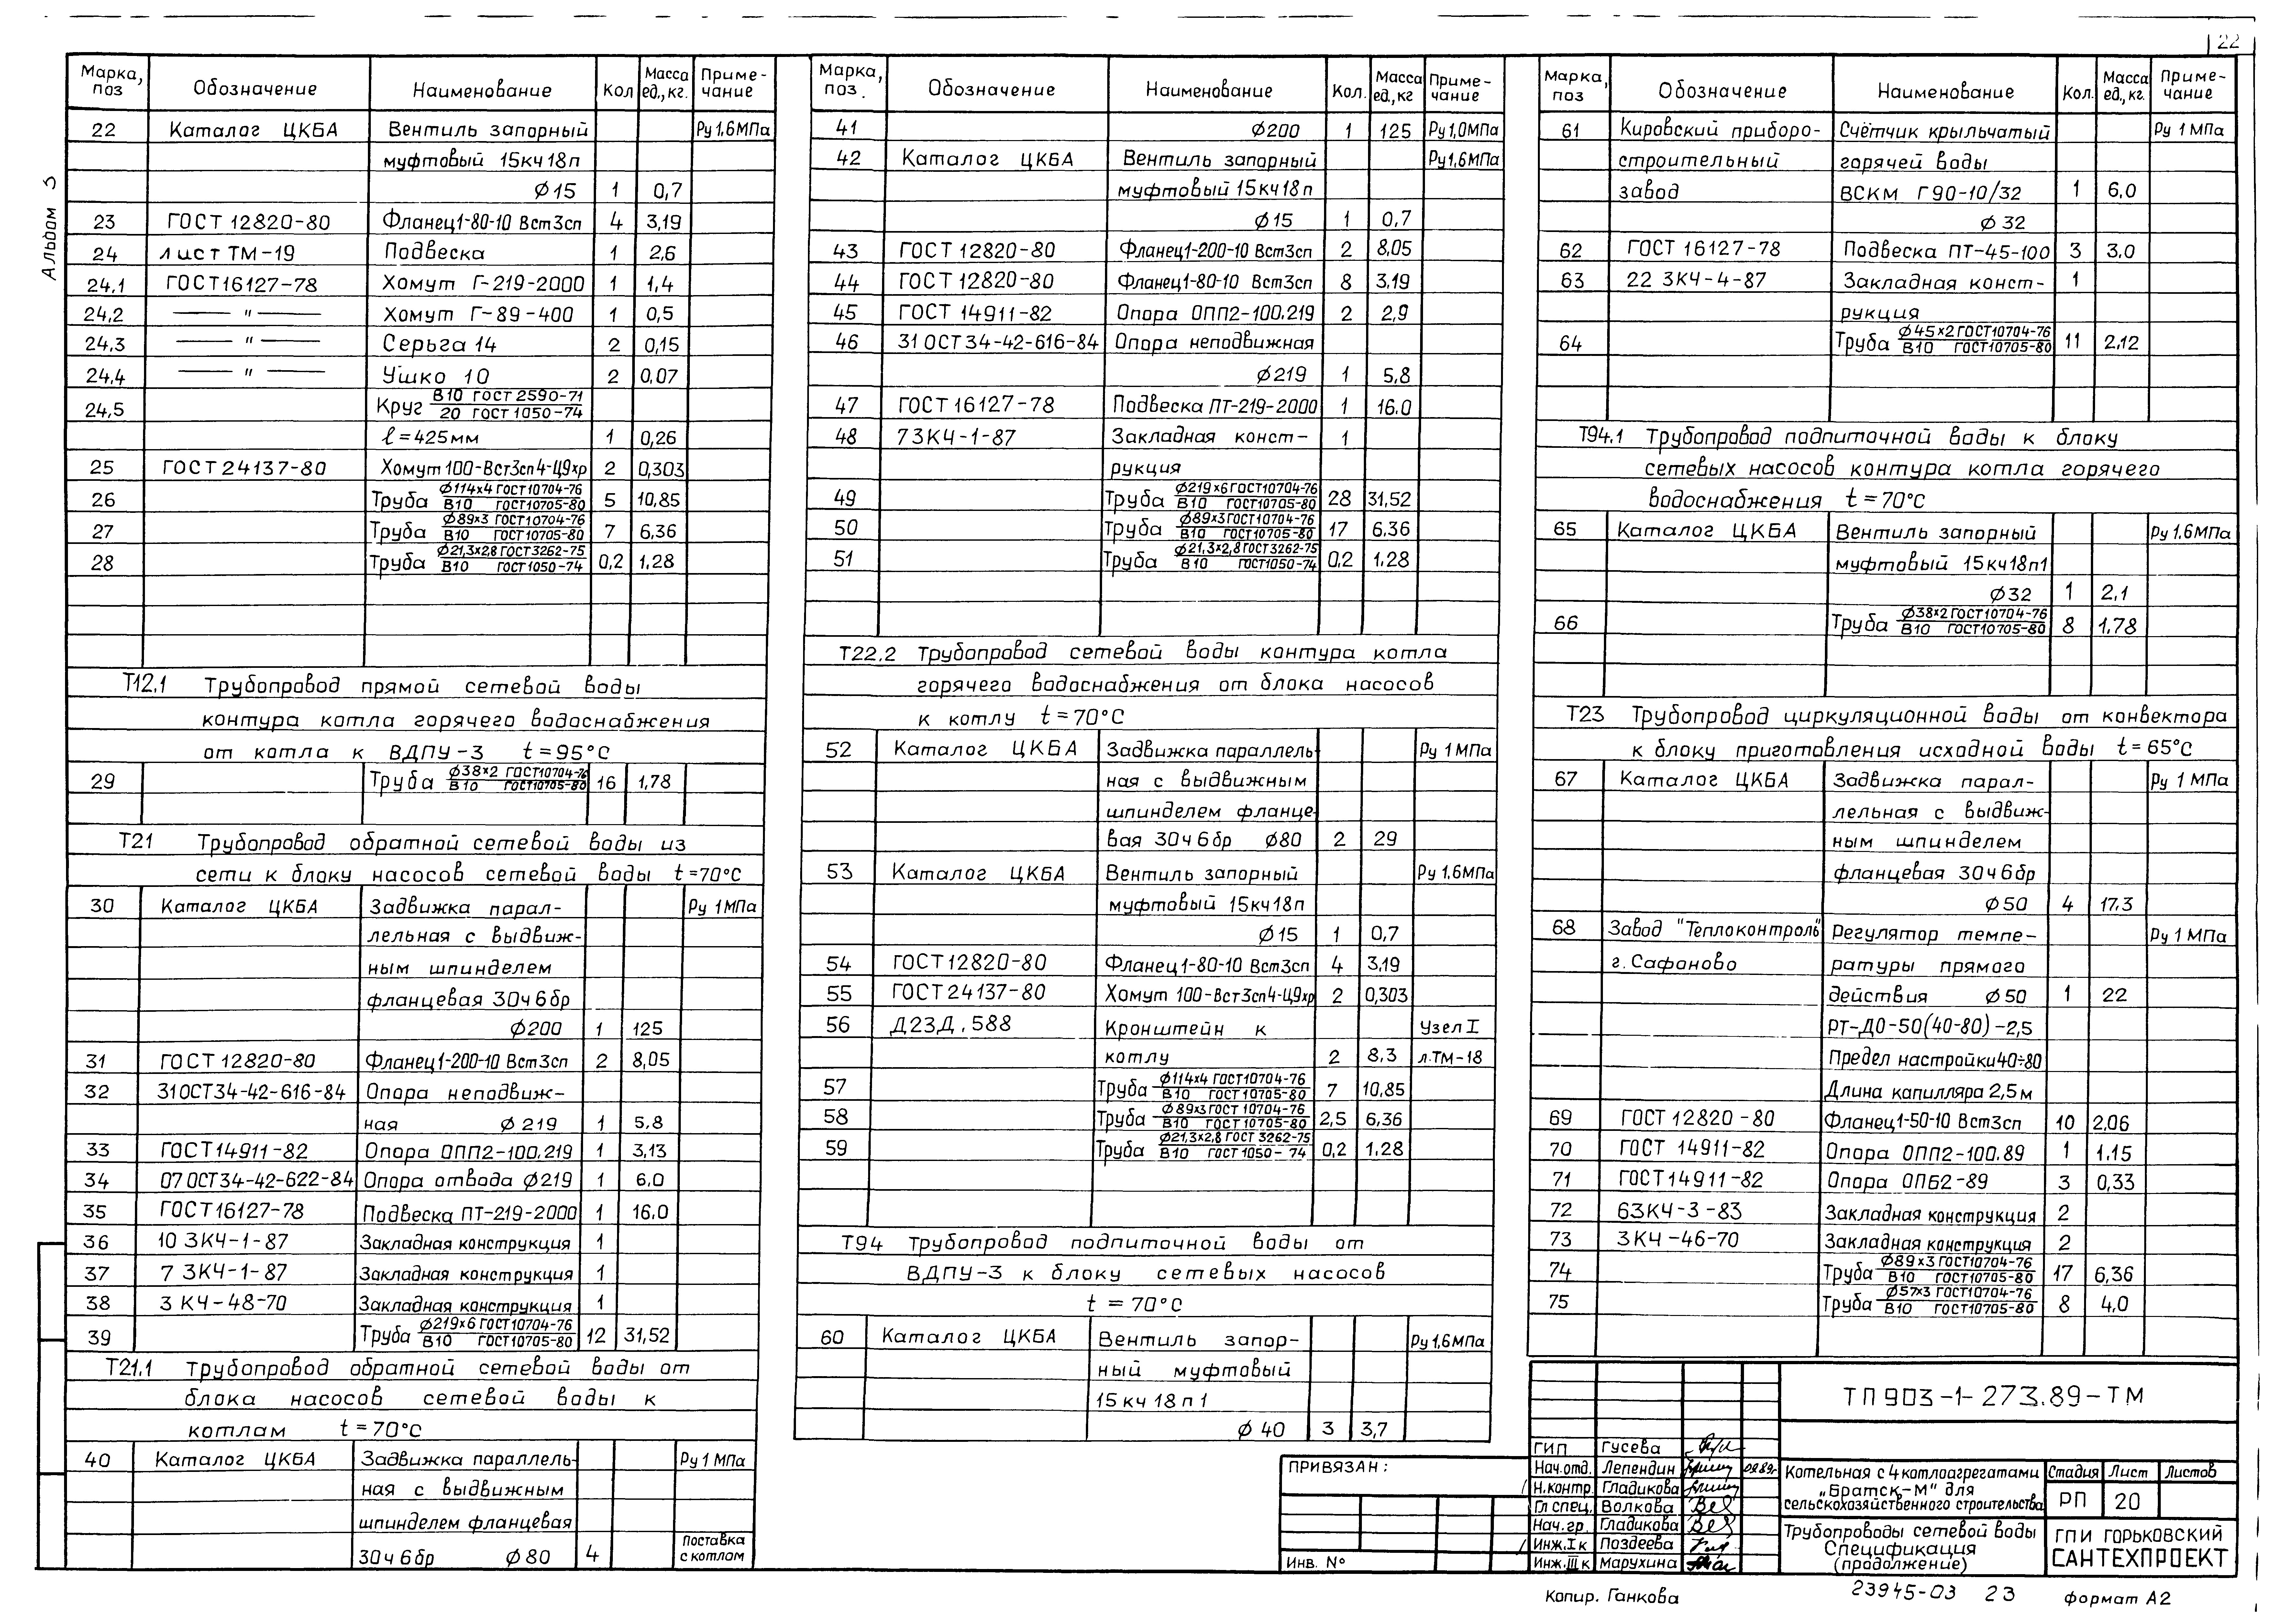 22
Альбом 3
Марка, поз Обозначение Наименование Кол Масса ед., кг. Приме-чание
22 Каталог ЦКБА Вентиль запорный Ру 1,6МПа
муфтовый 15кч18п
ф15 1 0,7
23 ГОСТ 12820-80 Фланец1-80-10 Вст3сп 4 3,19
24 лист ТМ-19 Подвеска 1 2,6
24,1 ГОСТ16127-78 Хомут Г-219-2000 1 1,4
24,2 — " — Хомут Г-89-400 1 0,5
24,3 — " — Серьга 14 2 0,15
24,4 — " — Ушко 10 2 0,07
24,5 Круг В10 ГОСТ 2590-71 / 20 ГОСТ 1050-74
ℓ=425мм 1 0,26
25 ГОСТ 24137-80 Хомут100-Вст3сп4-Ц9хр 2 0,303
26 Труба ф114х4 ГОСТ10704-76 / В10 ГОСТ10705-80 5 10,85
27 Труба ф89х3 ГОСТ10704-76 / В10 ГОСТ10705-80 7 6,36
28 Труба ф21,3х2,8 ГОСТ3262-75 / В10 ГОСТ1050-74 0,2 1,28
Т12.1 Трубопровод прямой сетевой воды
контура котла горячего водоснабжения
от котла к ВДПУ-3 t=95°С
29 Труба ф38х2 ГОСТ10704-76 / В10 ГОСТ10705-80 16 1,78
Т21 Трубопровод обратной сетевой воды из
сети к блоку насосов сетевой воды t=70°С
30 Каталог ЦКБА Задвижка парал- Ру 1МПа
лельная с выдвиж-
ным шпинделем
фланцевая 30ч6бр
ф200 1 125
31 ГОСТ 12820-80 Фланец1-200-10 Вст3сп 2 8,05
32 31ОСТ34-42-616-84 Опора неподвиж-
ная ф219 1 5,8
33 ГОСТ14911-82 Опора ОПП2-100.219 1 3,13
34 07 ОСТ34-42-622-84 Опора отвода ф219 1 6.0
35 ГОСТ16127-78 Подвеска ПТ-219-2000 1 16.0
36 10 ЗКЧ-1-87 Закладная конструкция 1
37 7 ЗКЧ-1-87 Закладная конструкция 1
38 3 КЧ-48-70 Закладная конструкция 1
39 Труба ф219х6 ГОСТ10704-76 / В10 ГОСТ10705-80 12 31,52
Т21.1 Трубопровод обратной сетевой воды от
блока насосов сетевой воды к
котлам t=70°С
40 Каталог ЦКБА Задвижка параллель- Ру 1 МПа
ная с выдвижным
шпинделем фланцевая
30ч6бр ф80 4 Поставка с котлом
Марка, поз. Обозначение Наименование Кол. Масса ед., кг Приме-чание
41 ф200 1 125 Ру1,0МПа
42 Каталог ЦКБА Вентиль запорный Ру1,6МПа
муфтовый 15кч18п
ф15 1 0,7
43 ГОСТ 12820-80 Фланец1-200-10 Вст3сп 2 8,05
44 ГОСТ 12820-80 Фланец1-80-10 Вст3сп 8 3,19
45 ГОСТ 14911-82 Опора ОПП2-100.219 2 2,9
46 31 ОСТ34-42-616-84 Опора неподвижная
ф219 1 5,8
47 ГОСТ 16127-78 Подвеска ПТ-219-2000 1 16.0
48 7ЗКЧ-1-87 Закладная конст- 1
рукция
49 Труба ф219х6 ГОСТ10704-76 / В10 ГОСТ10705-80 28 31,52
50 Труба ф89х3 ГОСТ10704-76 / В10 ГОСТ10705-80 17 6.36
51 Труба ф21,3х2,8 ГОСТ3262-75 / В10 ГОСТ1050-74 0,2 1.28
Т22.2 Трубопровод сетевой воды контура котла
горячего водоснабжения от блока насосов
к котлу t=70°С
52 Каталог ЦКБА Задвижка параллель- Ру 1 МПа
ная с выдвижным
шпинделем фланце-
вая 30ч6бр ф80 2 29
53 Каталог ЦКБА Вентиль запорный Ру 1.6МПа
муфтовый 15кч18п
ф15 1 0.7
54 ГОСТ12820-80 Фланец1-80-10 Вст3сп 4 3,19
55 ГОСТ 24137-80 Хомут 100-Вст3сп4-Ц9хр 2 0,303
56 Д23Д.588 Кронштейн к Узел I
котлу 2 8,3 л.ТМ-18
57 Труба ф114х4 ГОСТ10704-76 / В10 ГОСТ10705-80 7 10,85
58 Труба ф89х3 ГОСТ 10704-76 / В10 ГОСТ10705-80 2,5 6,36
59 Труба ф21,3х2,8 ГОСТ 3262-75 / В10 ГОСТ1050-74 0,2 1.28
Т94 Трубопровод подпиточной воды от
ВДПУ-3 к блоку сетевых насосов
t = 70°С
60 Каталог ЦКБА Вентиль запор- Ру1,6МПа
ный муфтовый
15кч18п1
ф40 3 3,7
Марка, поз Обозначение Наименование Кол. Масса ед., кг. Приме-чание
61 Кировский приборо- Счётчик крыльчатый Ру 1 МПа
строительный горячей воды
завод ВСКМ Г90-10/32 1 6,0
ф32
62 ГОСТ 16127-78 Подвеска ПТ-45-100 3 3.0
63 22 ЗКЧ-4-87 Закладная конст- 1
рукция
64 Труба ф45х2 ГОСТ10704-76 / В10 ГОСТ10705-80 11 2.12
Т94.1 Трубопровод подпиточной воды к блоку
сетевых насосов контура котла горячего
водоснабжения t=70°С
65 Каталог ЦКБА Вентиль запорный Ру 1.6МПа
муфтовый 15кч18п1
ф32 1 2,1
66 Труба ф38х2 ГОСТ10704-76 / В10 ГОСТ10705-80 8 1.78
Т23 Трубопровод циркуляционной воды от конвектора
к блоку приготовления исходной воды t=65°С
67 Каталог ЦКБА Задвижка парал- Ру 1 МПа
лельная с выдвиж-
ным шпинделем
фланцевая 30ч6бр
ф50 4 17.3
68 Завод "Теплоконтроль" Регулятор темпе- Ру 1 МПа
г. Сафоново ратуры прямого
действия ф50 1 22
РТ-ДО-50(40-80)-2,5
Предел настройки40÷80
Длина капилляра 2,5м
69 ГОСТ 12820-80 Фланец1-50-10 Вст3сп 10 2,06
70 ГОСТ 14911-82 Опора ОПП2-100.89 1 1.15
71 ГОСТ14911-82 Опора ОПБ2-89 3 0,33
72 6ЗКЧ-3-83 Закладная конструкция 2
73 3КЧ-46-70 Закладная конструкция 2
74 Труба ф89х3 ГОСТ10704-76 / В10 ГОСТ10705-80 17 6,36
75 Труба ф57х3 ГОСТ10704-76 / В10 ГОСТ10705-80 8 4,0
ПРИВЯЗАН:
Инв. №
ТП903-1-273.89-ТМ
ГИП Гусева
Нач.отд. Лепендин 09.89г
Н.контр. Гладикова
Гл спец. Волкова
Нач.гр. Гладикова
Инж.Iк Поздеева
Инж.IIIк Марухина
Котельная с 4 котлоагрегатами
„Братск-М" для
сельскохозяйственного строительства
Стадия Лист Листов
РП 20
Трубопроводы сетевой воды
Спецификация
(продолжение)
ГПИ ГОРЬКОВСКИЙ
САНТЕХПРОЕКТ
Копир. Ганкова
23945-03 23
формат А2